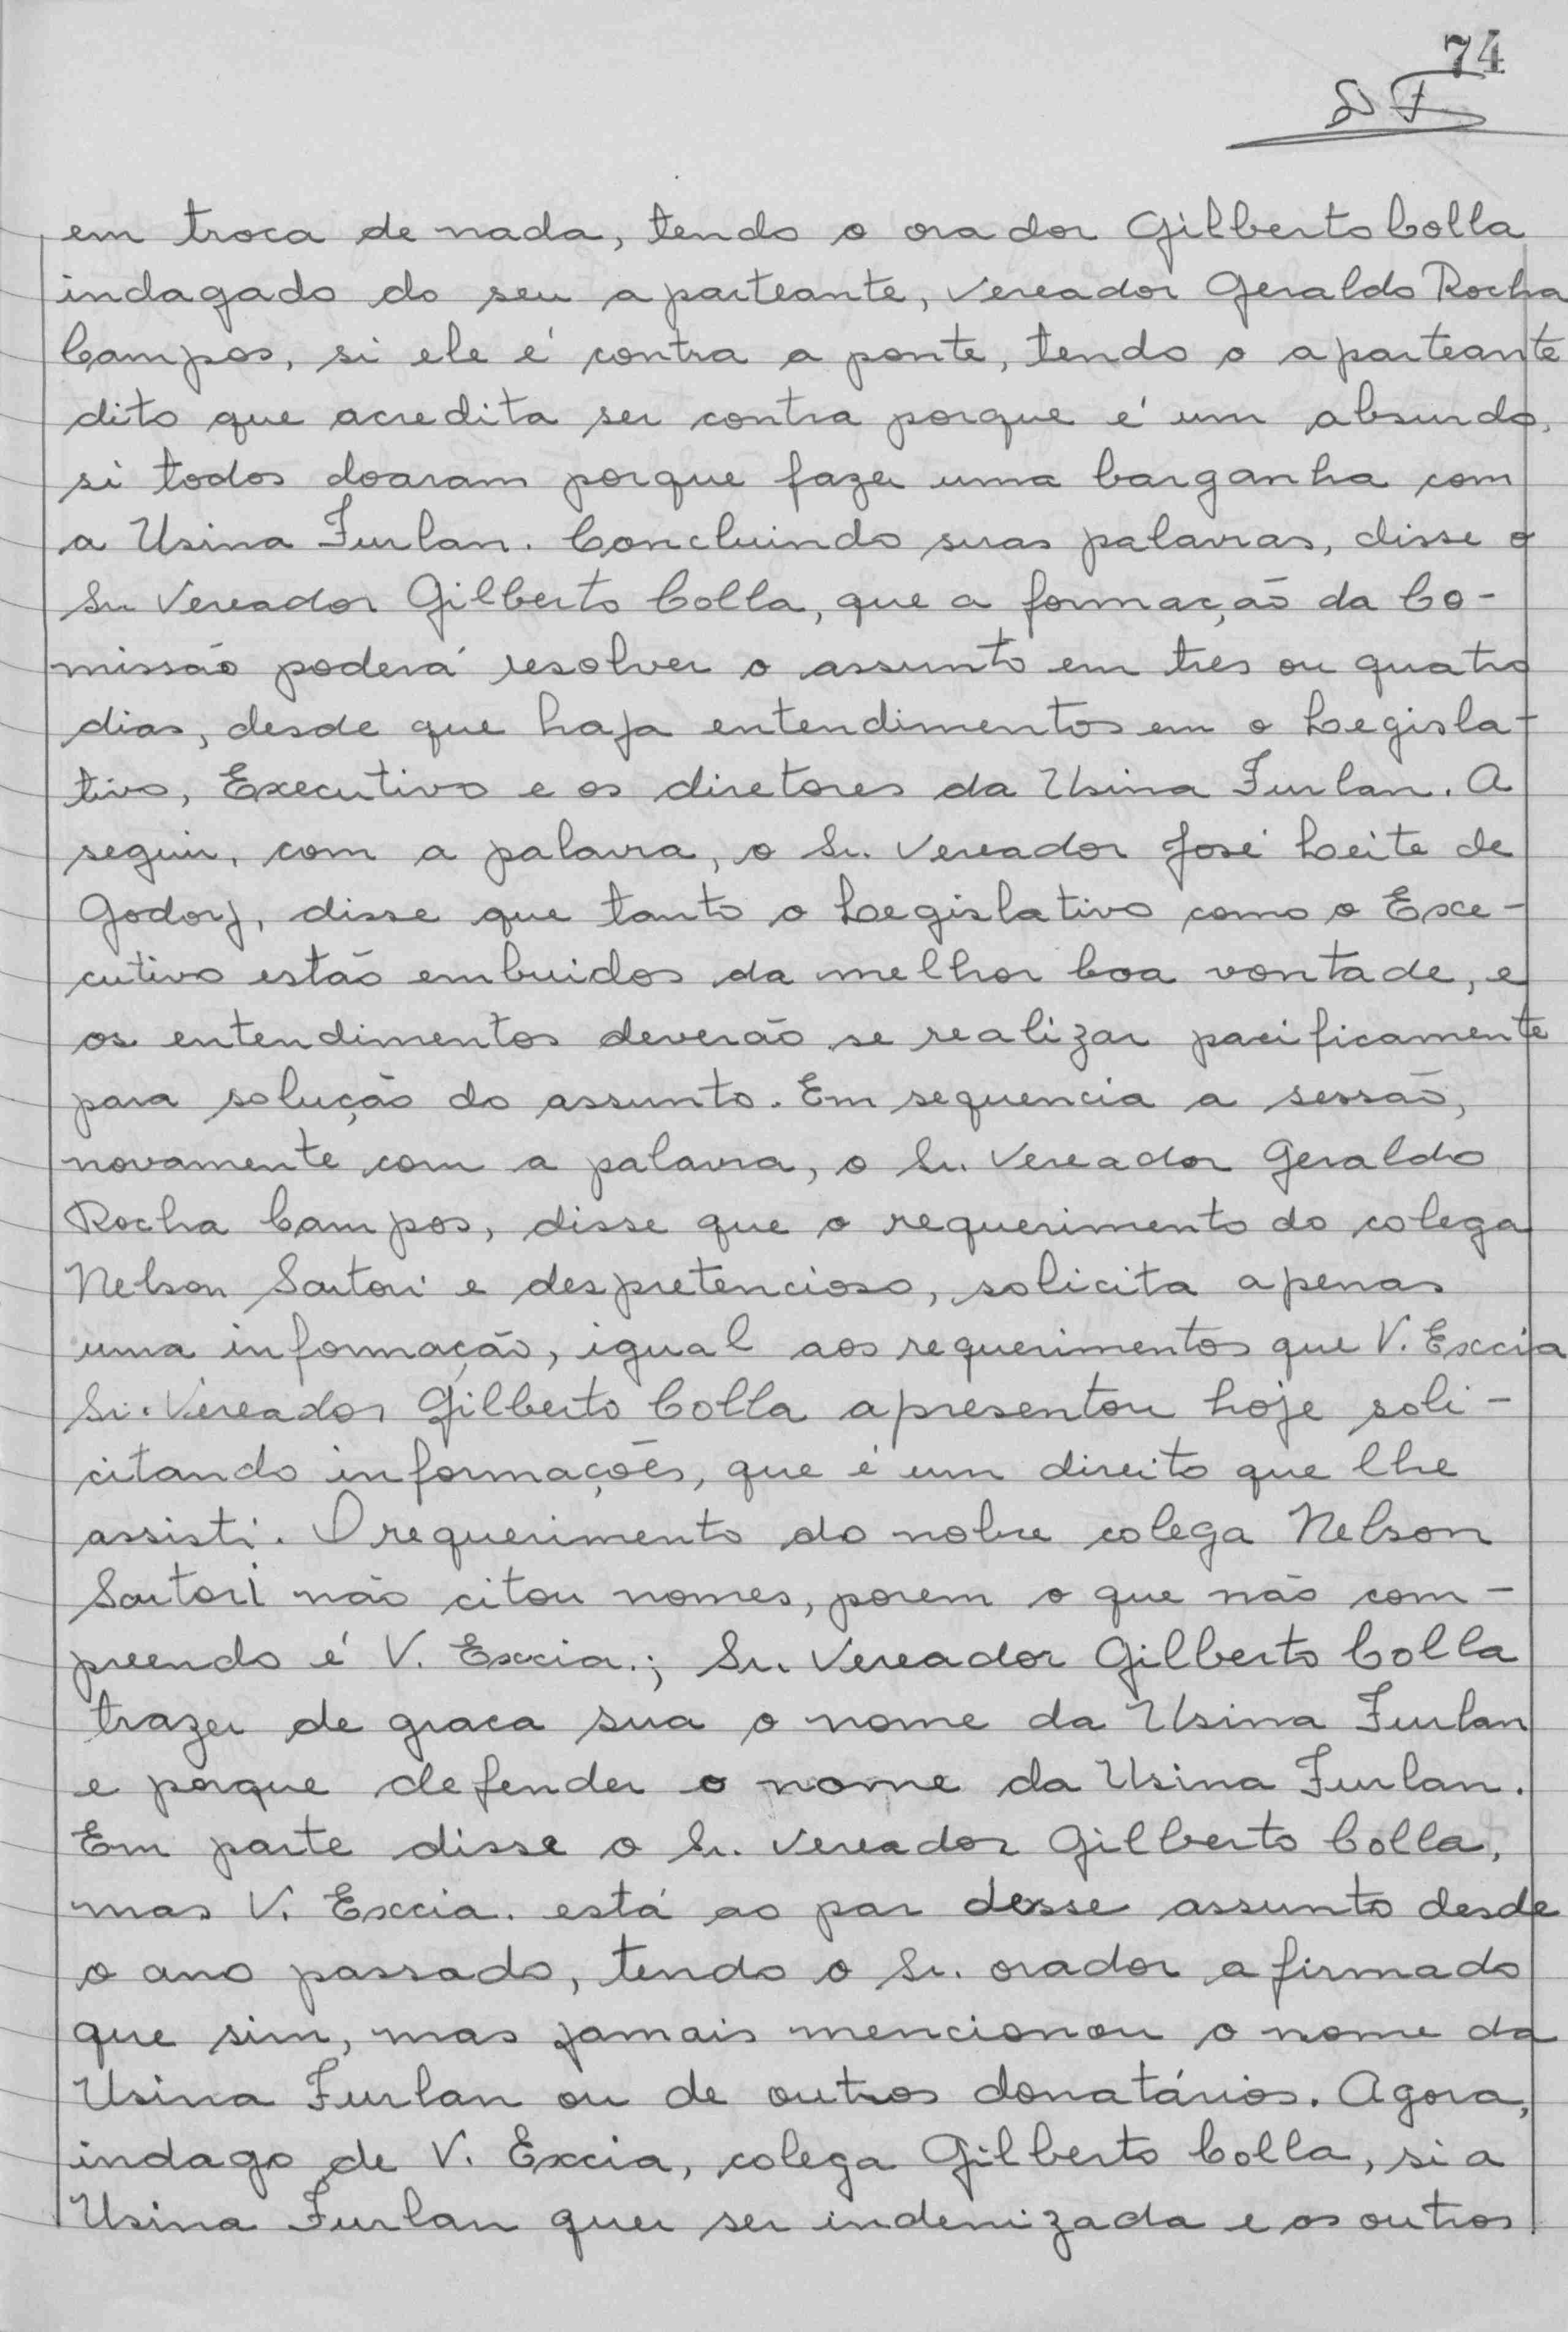 74
em troca de nada, tendo o orador Gilberto Colla
indagado do seu aparteante, Vereador Geraldo Rocha
Campos, si ele é contra a ponte, tendo o aparteante
dito que acredita ser contra porque é um absurdo,
si todos doaram porque fazer uma barganha com
a Usina Furlan. Concluindo suas palavras, disse o
Sr. Vereador Gilberto Colla, que a formação da Co-
missão poderá resolver o assunto em tres ou quatro
dias, desde que haja entendimentos em o Legisla-
tivo, Executivo e os diretores da Usina Furlan. A
seguir, com a palavra, o Sr. Vereador José Leite de
Godoy, disse que tanto o Legislativo como o Exe-
cutivo estão embuidos da melhor boa vontade, e
os entendimentos deverão se realizar pacificamente
para solução do assunto. Em sequencia a sessão,
novamente com a palavra, o Sr. Vereador Geraldo
Rocha Campos, disse que o requerimento do colega
Nelson Sartori e despretencioso, solicita apenas
uma informação, igual aos requerimentos que V. Excia
Sr. Vereador Gilberto Colla apresentou hoje soli-
citando informações, que é um direito que lhe
assisti. O requerimento do nobre colega Nelson
Sartori não citou nomes, porem o que não com-
preendo é V. Excia.; Sr. Vereador Gilberto Colla
trazer de graca sua o nome da Usina Furlan
e porque defender o nome da Usina Furlan.
Em parte disse o Sr. Vereador Gilberto Colla,
mas V. Excia. está ao par desse assunto desde
o ano passado, tendo o Sr. orador afirmado
que sim, mas jamais mencionou o nome da
Usina Furlan ou de outros donatários. Agora,
indago de V. Excia, colega Gilberto Colla, si a
Usina Furlan quer ser indenizada e os outros